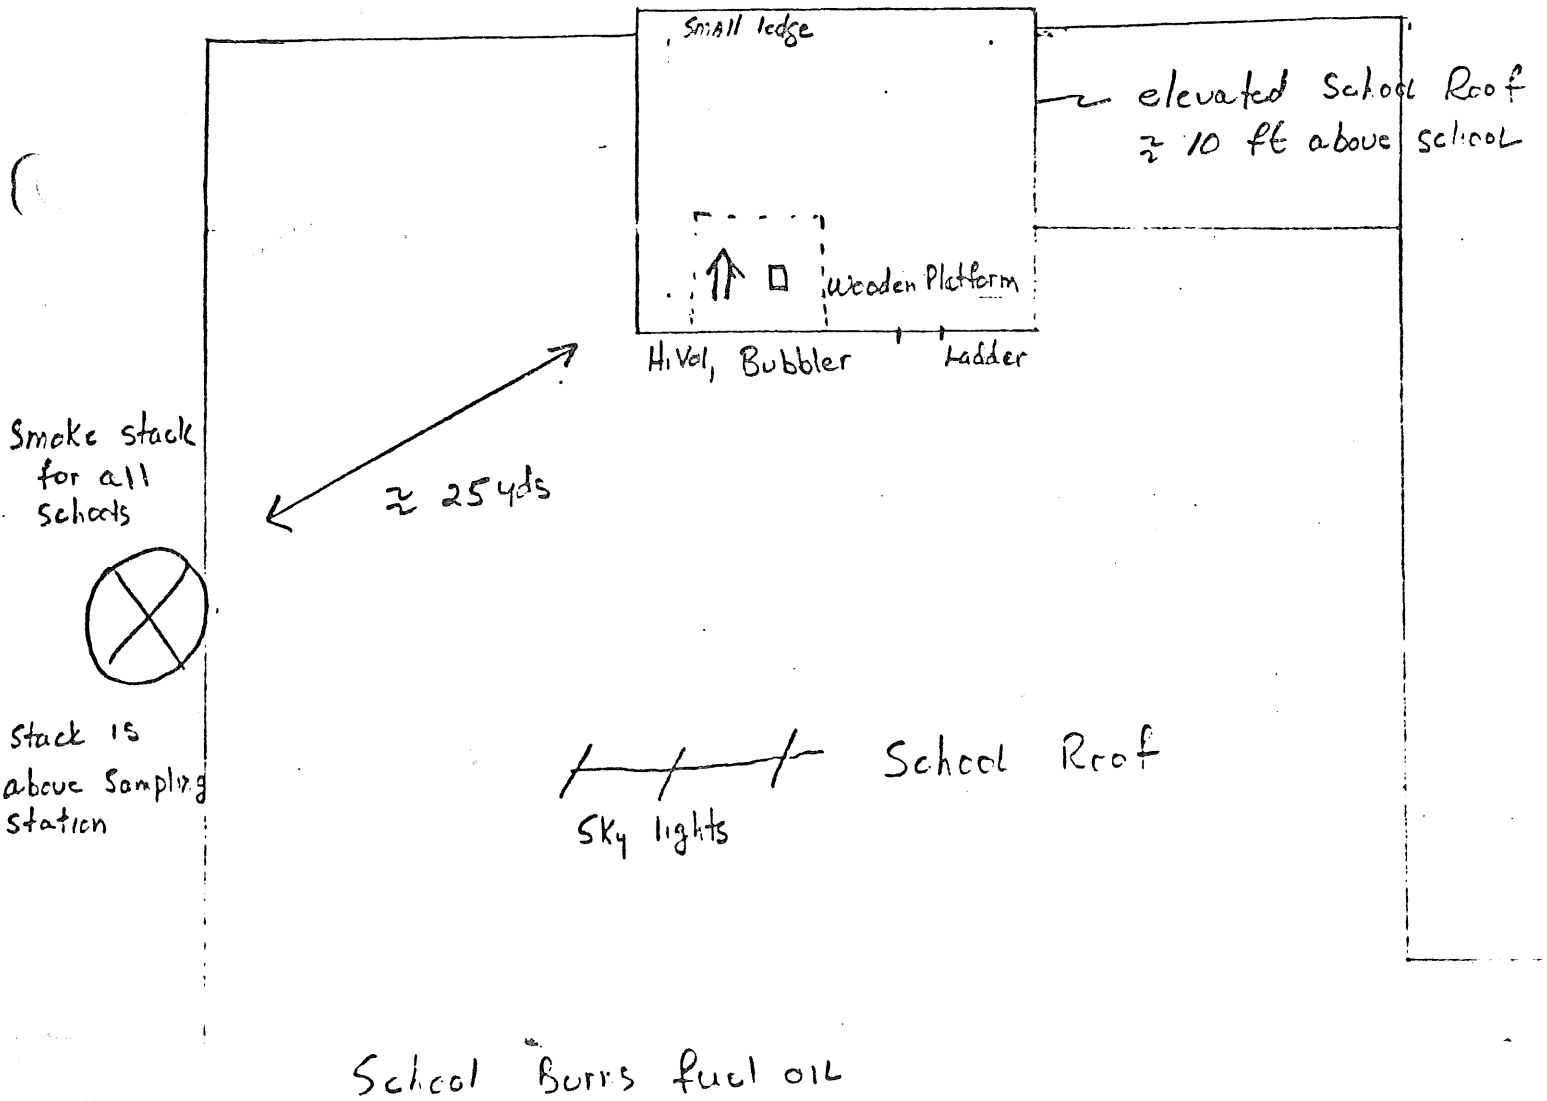 Small ledge
elevated School Roof
≈ 10 ft above school
Wooden Platform
HiVol, Bubbler
Ladder
Smoke stack
for all
schools
≈ 25 yds
Stack is
above Sampling
Station
School Roof
Sky lights
School Burns fuel oil